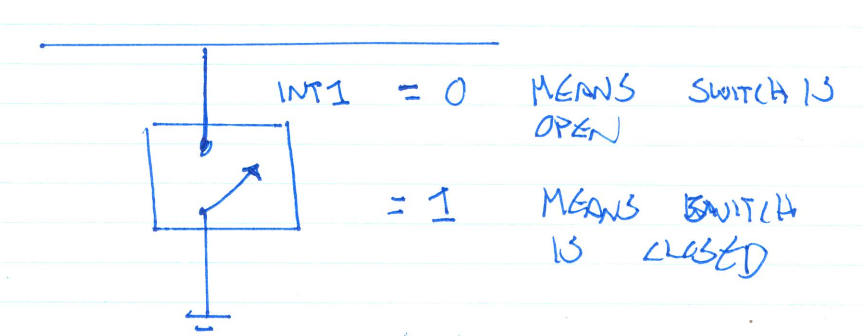 INT1 = 0 MEANS SWITCH IS
OPEN
= 1 MEANS SWITCH
IS CLOSED